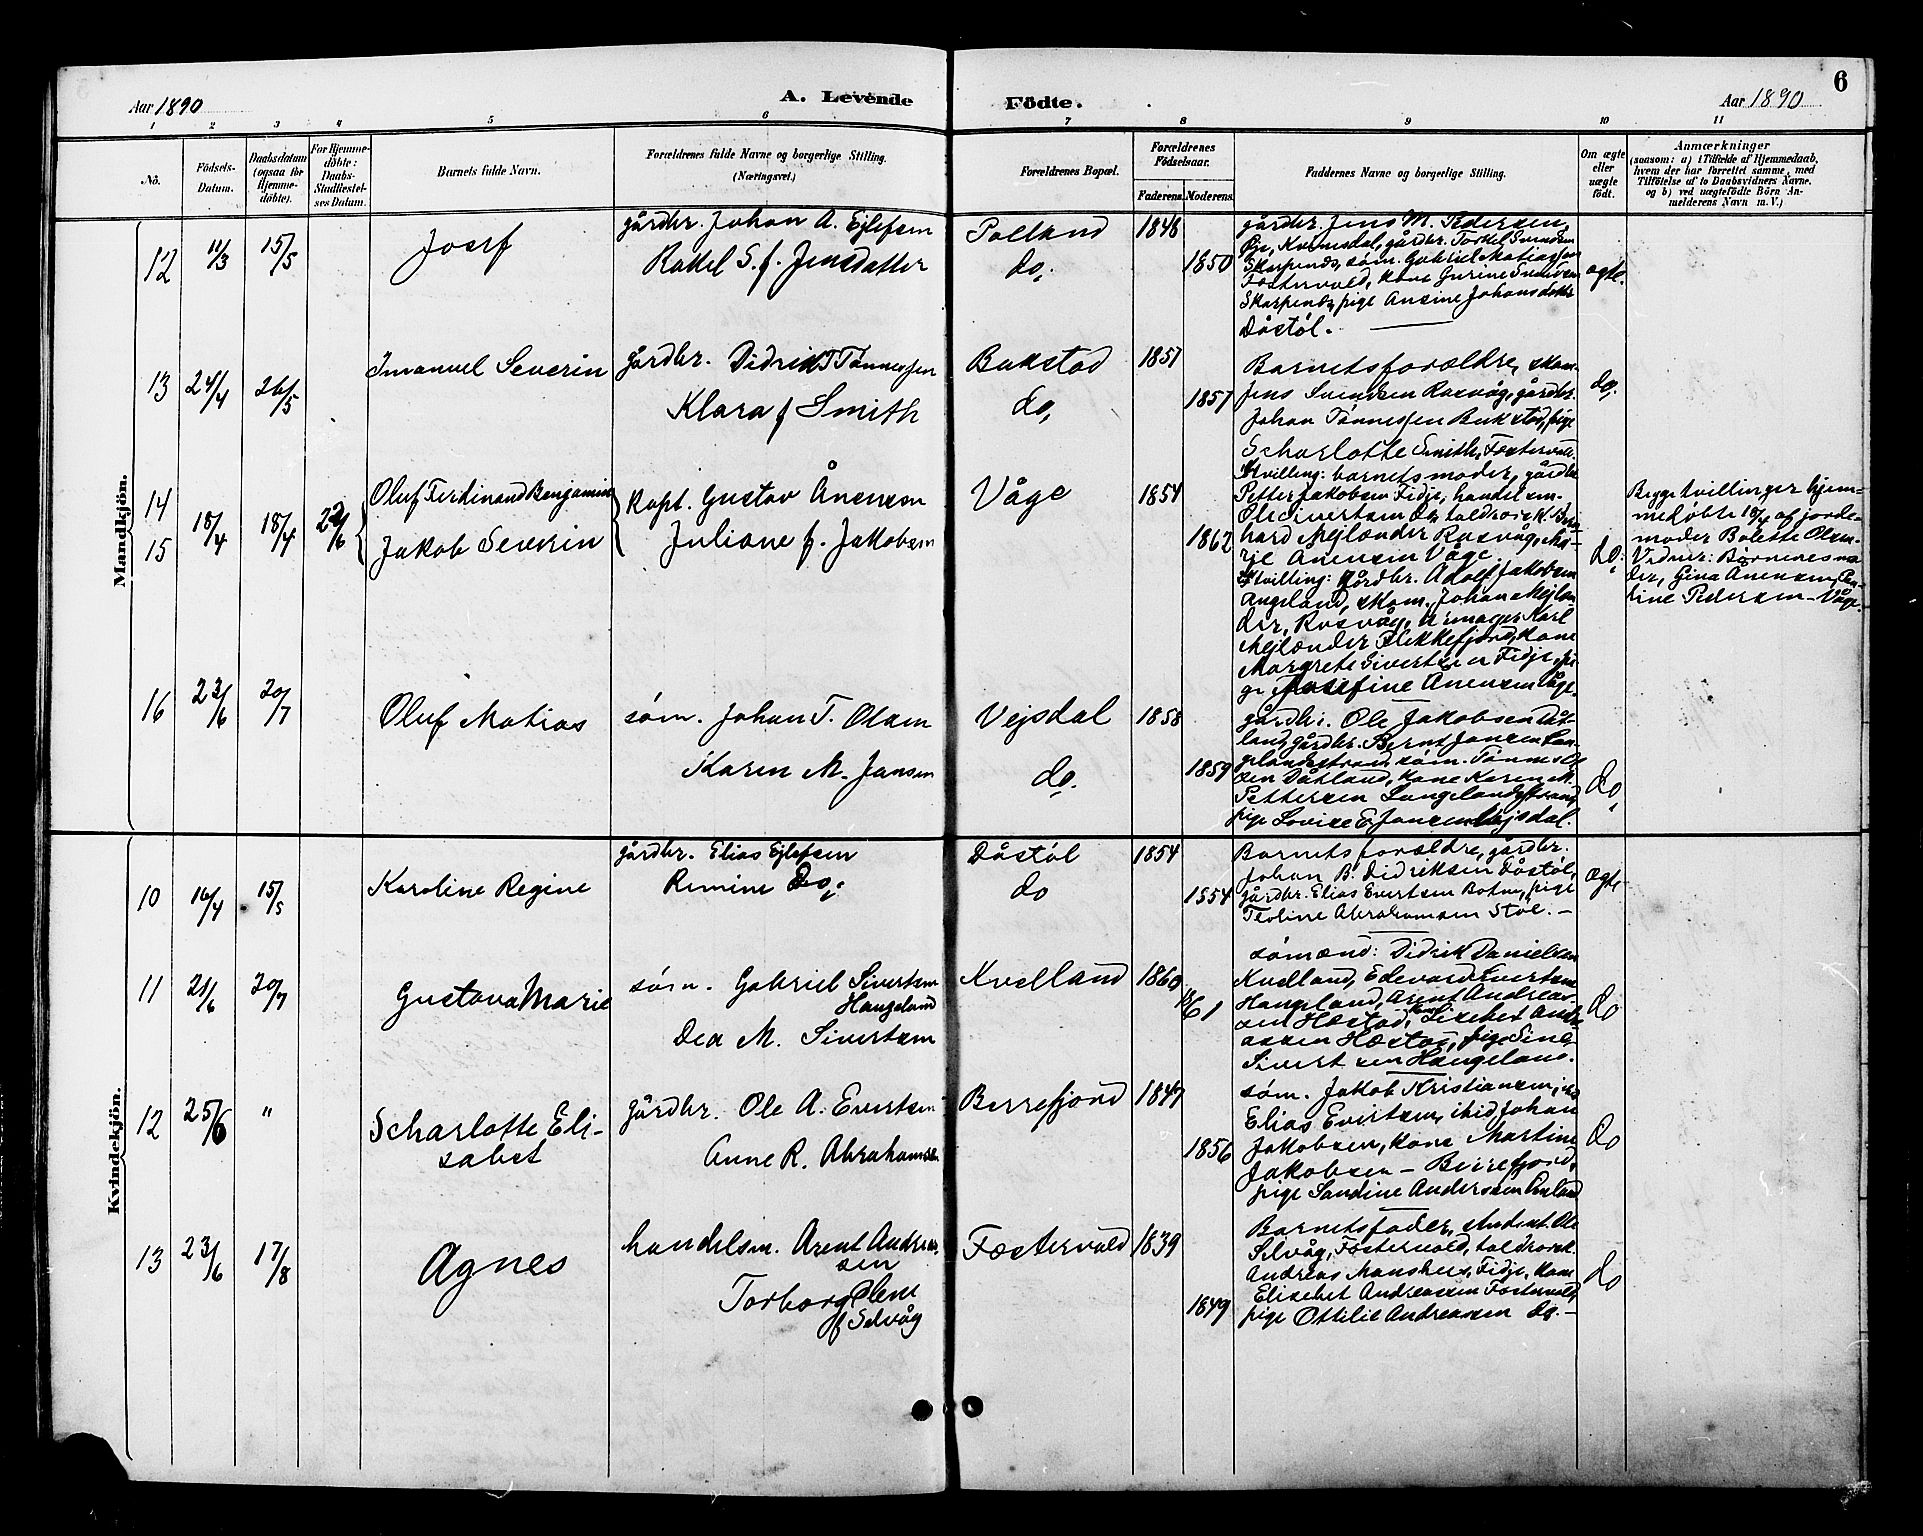 6
Aar 1890
A. Levende
Födte.
Aar 1890
1 2 3 4 5 6 7 8 9 10 11
No.
Födsels-Datum.
Daabsdatum (ogsaa for Hjemmedöbte).
For Hjemmedöbte: Daabs-Stadfæstelses Datum.
Barnets fulde Navn.
Forældrenes fulde Navne og borgerlige Stilling. (Næringsvei.)
Forældrenes Bopæl.
Forældrenes Födselsaar.
Faderens.
Moderens.
Faddernes Navne og borgerlige Stilling.
Om ægte eller uægte födt.
Anmærkninger
(saasom: a) i Tilfælde af Hjemmedaab, hvem der har forrettet samme, med Tilföielse af to Daabsvidners Navne, og b) ved uægtefödte Börn Anmelderens Navn m. V.)
Mandkjön.
12 11/3 15/5 Josef
gårdbr. Johan A. Ejlefsen
Rakel S. f. Jensdatter
do.
1848
1850
gårdbr. Jens M. Pedersen
Øje, Kvinesdal, gårdbr. Torkel Svendsen
Skarpenes, søm. Gabriel Matiassen
Fæstervold, kone Gurine Svendsen
Skarpenes, pige Ansine Johansdatter
Dåstøl.
ægte.
13 24/4 26/5 Imanuel Severin
gårdbr. Didrik T Tønnessen
Klara f Smith
Bukstad
do,
1857
1857
Barnets forældre, skom.
Jens Svendsen Rasvåg, gårdbr.
Johan Tønnessen Bukstad, pige
Scharlotte Smith, Fæstervold.
do.
14
15
18/4 18/4 22/6
Oluf Ferdinand Benjamin
Jakob Severin
kapt. Gustav Ånensen
Juliane f. Jakobsen
Våge
1854
1862
tvilling: barnets moder, gårdbr.
Petter Jakobsen Fidje, handelsm.
Ole Sivertsen do, toldrorsk. Bern
hard Mejlænder Rasvåg, Ma-
rie Anensen Våge
tvilling: gårdbr. Adolf Jakobsen
Angeland, skom. Johan Mejlæn
der, Rasvåg, urmager Karl
Mejlænder Flekkefjord, kone
Margrete Sivertsen Fidje, pi-
ge Josefine Anensen Våge.
do.
Begge tvillinger hjem-
medøbte 18/4 af jorde-
moder Bolette Olsen.
Vidner: Børnenes mo
der, Gina Ånensen,
Pedersen - Våge.
16 23/6 20/7 Oluf Matias
søm. Johan T. Olsen
Karen M. Jansen
Vejsdal
do.
1858
1859
gårdbr. Ole Jakobsen Dåt-
land, gårdbr. Bernt Jansen Lan-
gelandsstrand, søm. Tønnes Ol
sen Dåtland, kone Karen M.
Pettersen Langelandsstrand,
pige Lovise E. Jansen Vejsdal.
do
Kvindekjön.
10 16/4 15/5 Karoline Regine
gårdbr. Elias Ejlefsen
Remine do.
Dåstøl
do
1854
1854
Barnets forældre, gårdbr.
Johan B. Didriksen Dåstøl,
gårdbr. Elias Evertsen Botne, pige
Teoline Abrahamsen Støle. -
ægte
11 21/6 20/7 Gustava Marie
søm. Gabriel Sivertsen
Haugeland
Dea M. Sivertsen
Kvelland
1860
1861
sømænd: Didrik Danielsen
Kvelland, Edevard Evertsen
Haugeland, Arent Andreas-
sen Hæstad, kone Lisebet Andre
assen Hæstad, pige Sine
Sivertsen Haugeland.
do
12 25/6 " Scharlotte Eli-
sabet
gårdbr. Ole A. Evertsen
Anne R. Abrahamsen
Berrefjord
1847
1856
søm. Jakob Kristiansen,
Elias Evertsen, ibid Johan
Jakobsen, kone Martine
Jakobsen - Berrefjord,
pige Sandine Andersen
do
13 23/6 17/8 Agnes
handelsm. Arent Andreas
sen
Torborg Olene
f Selvåg
Fæstervold
1839
1849
Barnets fader, student. Ole
Selvåg, Fæstervold, toldrorsk.
Andreas Fidje, kone
Elisebet Andreassen Fæstervold,
pige Ottilie Andreassen do. -
do